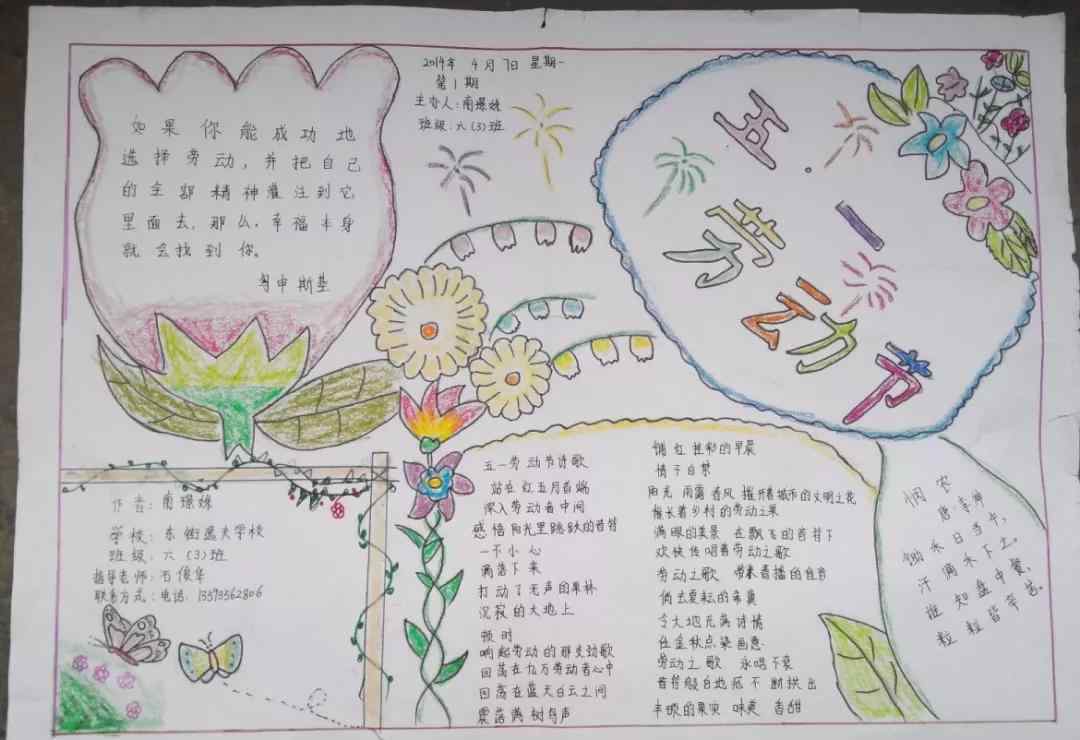 2014年 4月7日 星期一
第1期
主办人:南璟姝
班级:六(3)班
如果你能成功地
选择劳动,并把自己
的全部精神灌注到它
里面去,那么,幸福本身
就会找到你。
粤申斯基
五·一
劳动节
作者:南璟姝
学校:东街逸夫学校
班级:六(3)班
指导老师:石俊华
联系方式:电话:13593562806
五一劳动节诗歌
站在红五月前端
深入劳动者中间
感悟阳光里跳跃的音符
一不小心
滴落下来
打动了无声的果林
沉寂的大地上
顿时
响起劳动的那支劲歌
回荡在九万劳动者心中
回荡在蓝天白云之间
震落满树鸟声
铺红挂彩的早晨
情不自禁
阳光 雨露 春风 摧开着城市的文明之花
催长着乡村的劳动之果
满眼的美景 在飘飞的音符下
欢快传唱着劳动之歌
劳动之歌 带来春播的佳音
倘去夏耘的希冀
令大地充满诗情
任金秋点染画意
劳动之歌 永唱不衰
音符般自地底不断拱出
丰硕的果实 味美 香甜
悯农
唐 李绅
锄禾日当午,
汗滴禾下土。
谁知盘中餐,
粒粒皆辛苦。